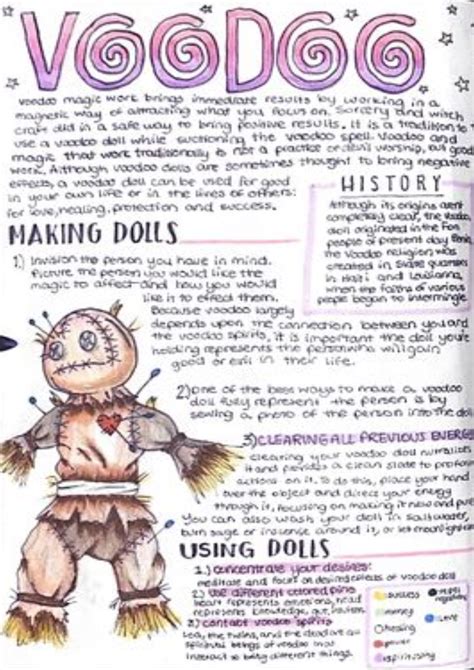 VOODOO
Voodoo magic work brings immediate results by working in a
magnetic way of attracting what you focus on. Sorcery and witch
craft did in a safe way to bring positive results. It is a tradition to
use a voodoo doll while suctioning the voodoo spell. Voodoo and
magic that work traditionally is not a practice or devil worship, but good
work. Although voodoo dolls are sometimes thought to bring negative
effects, a voodoo doll can be used for good
in your own life or in the lives of others:
for love, healing, protection and success.
HISTORY
Although its origins aren't
completely clear, the voodoo
doll originated in the Fon
people of present day
the Voodoo religion was
created in slave quarters
in Haiti and Louisianna,
when the faiths of various
people began to intermingle
MAKING DOLLS
1.) Invision the person you have in mind.
Picture the person you would like the
magic to affect and how you would
like it to effect them.
Because voodoo largely
depends upon the connection between you and
the voodoo spirits, it is important the doll you're
holding represents the person who will gain
good or evil in their life.
2) One of the best ways to make a voodoo
doll fully represent the person is by
sewing a photo of the person into the doll
3) CLEARING ALL PREVIOUS ENERGE
clearing your voodoo doll nutralizes
it and provides a clean slate to preform
actions on it. To do this, place your hand
over the object and direct your energy
through it, focusing on making it new and pure
You can also wash your doll in saltwater,
burn sage or insense around it, or let moonlight
USING DOLLS
1.) concentrate your desires:
meditate and focus on desired effects of voodoo doll
2.) use different colored pins
heart represents emotions, head
represents knowledge,
3.) contact voodoo spirits
Loa, the twins, and the dead are
spiritual beings of voodoo that
interact to bring different things.
success
repel
negativity
money
love
healing
power
spirituality